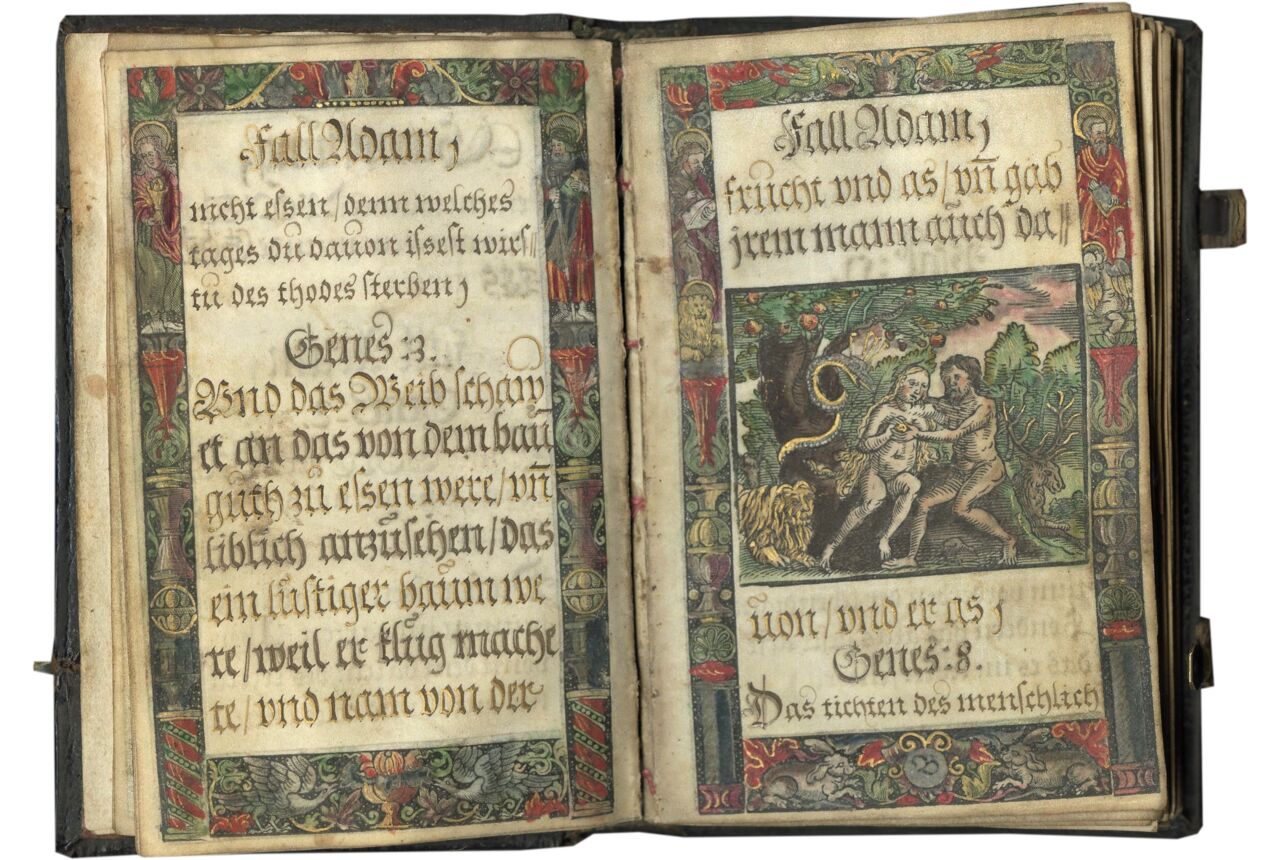 Fall Adam,
nicht essen/denn welches
tages dü daüon issest wirs//
tü des thodes sterben,
Genes:3.
Vnd das Weib schaw
et an das von dem baü
güth zü essen were/vn̄
liblich anzüsehen/das
ein lüstiger baüm we
re/weil er klüg mache
te/vnd nam von der
Fall Adam,
früicht vnd as/vn̄ gab
jrem mann aüch da//
üon/vnd er as,
Genes:8.
Das tichten des menschlich